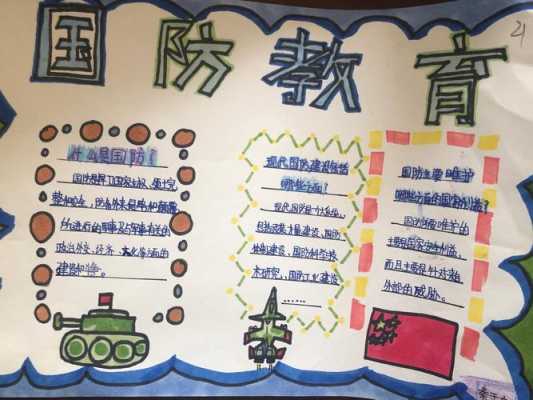 国防教育
21
什么是国防？
国防是为了国家主权、领土完
整和安全，防备外来侵略和颠覆
所进行的军事及与军事有关的
政治、外交、经济、文化等方面的
建设和斗争。
现代国防建设包括
哪些方面？
现代国防是个大系统，
包括武装力量建设、国防
体制建设、国防科学技
术研究、国防工业建设
……
国防主要维护
哪些方面的国家利益？
国防所要维护的
主要是国家安全利益，
而且主要是针对来自
外部的威胁。